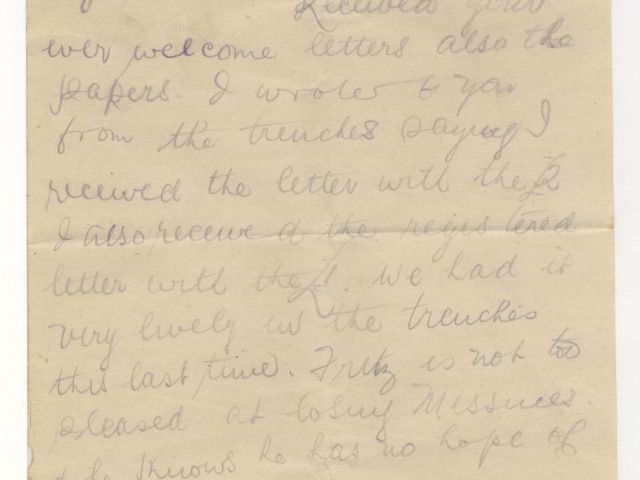 Received your
ever welcome letters also the
papers. I wrote to you
from the trenches saying I
received the letter with the £
I also received the registered
letter with the £1. We had it
very lively in the trenches
this last time. Fritz is not too
pleased at losing Messines.
knows he has no hope of